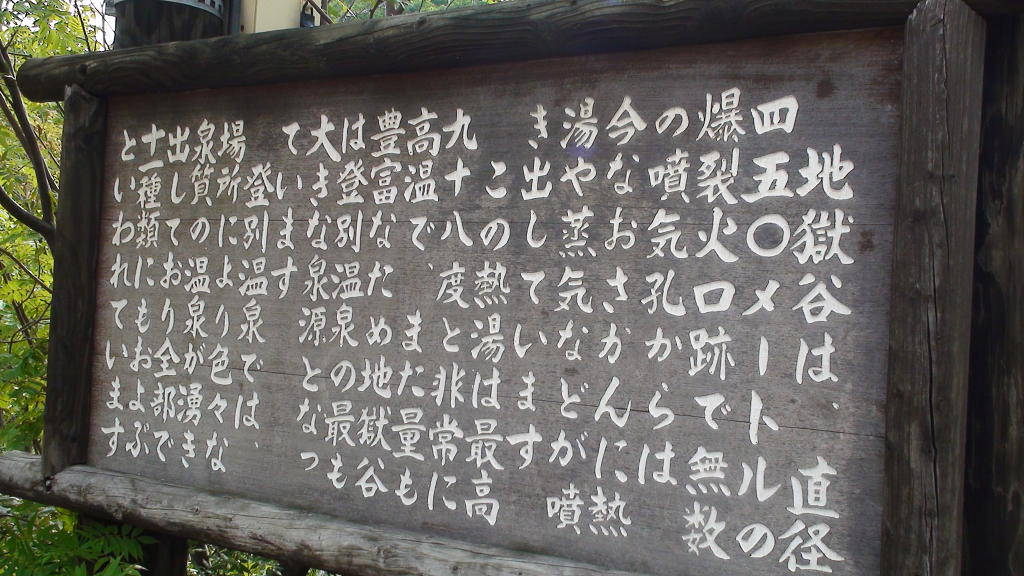 地獄谷は、直径
四五〇メートルの
爆裂火口跡で無数
の噴気孔からは
今なおさかんに熱
湯や蒸気などが噴
き出しています
この熱湯は最高
九十八度と非常に
高温で、また量も
豊富なため地獄谷
は登別温泉の最も
大きな泉源となっ
ています
登別温泉では、
場所により色々な
泉質の温泉が湧き
出しており全部で
十一種類にもおよぶ
といわれています